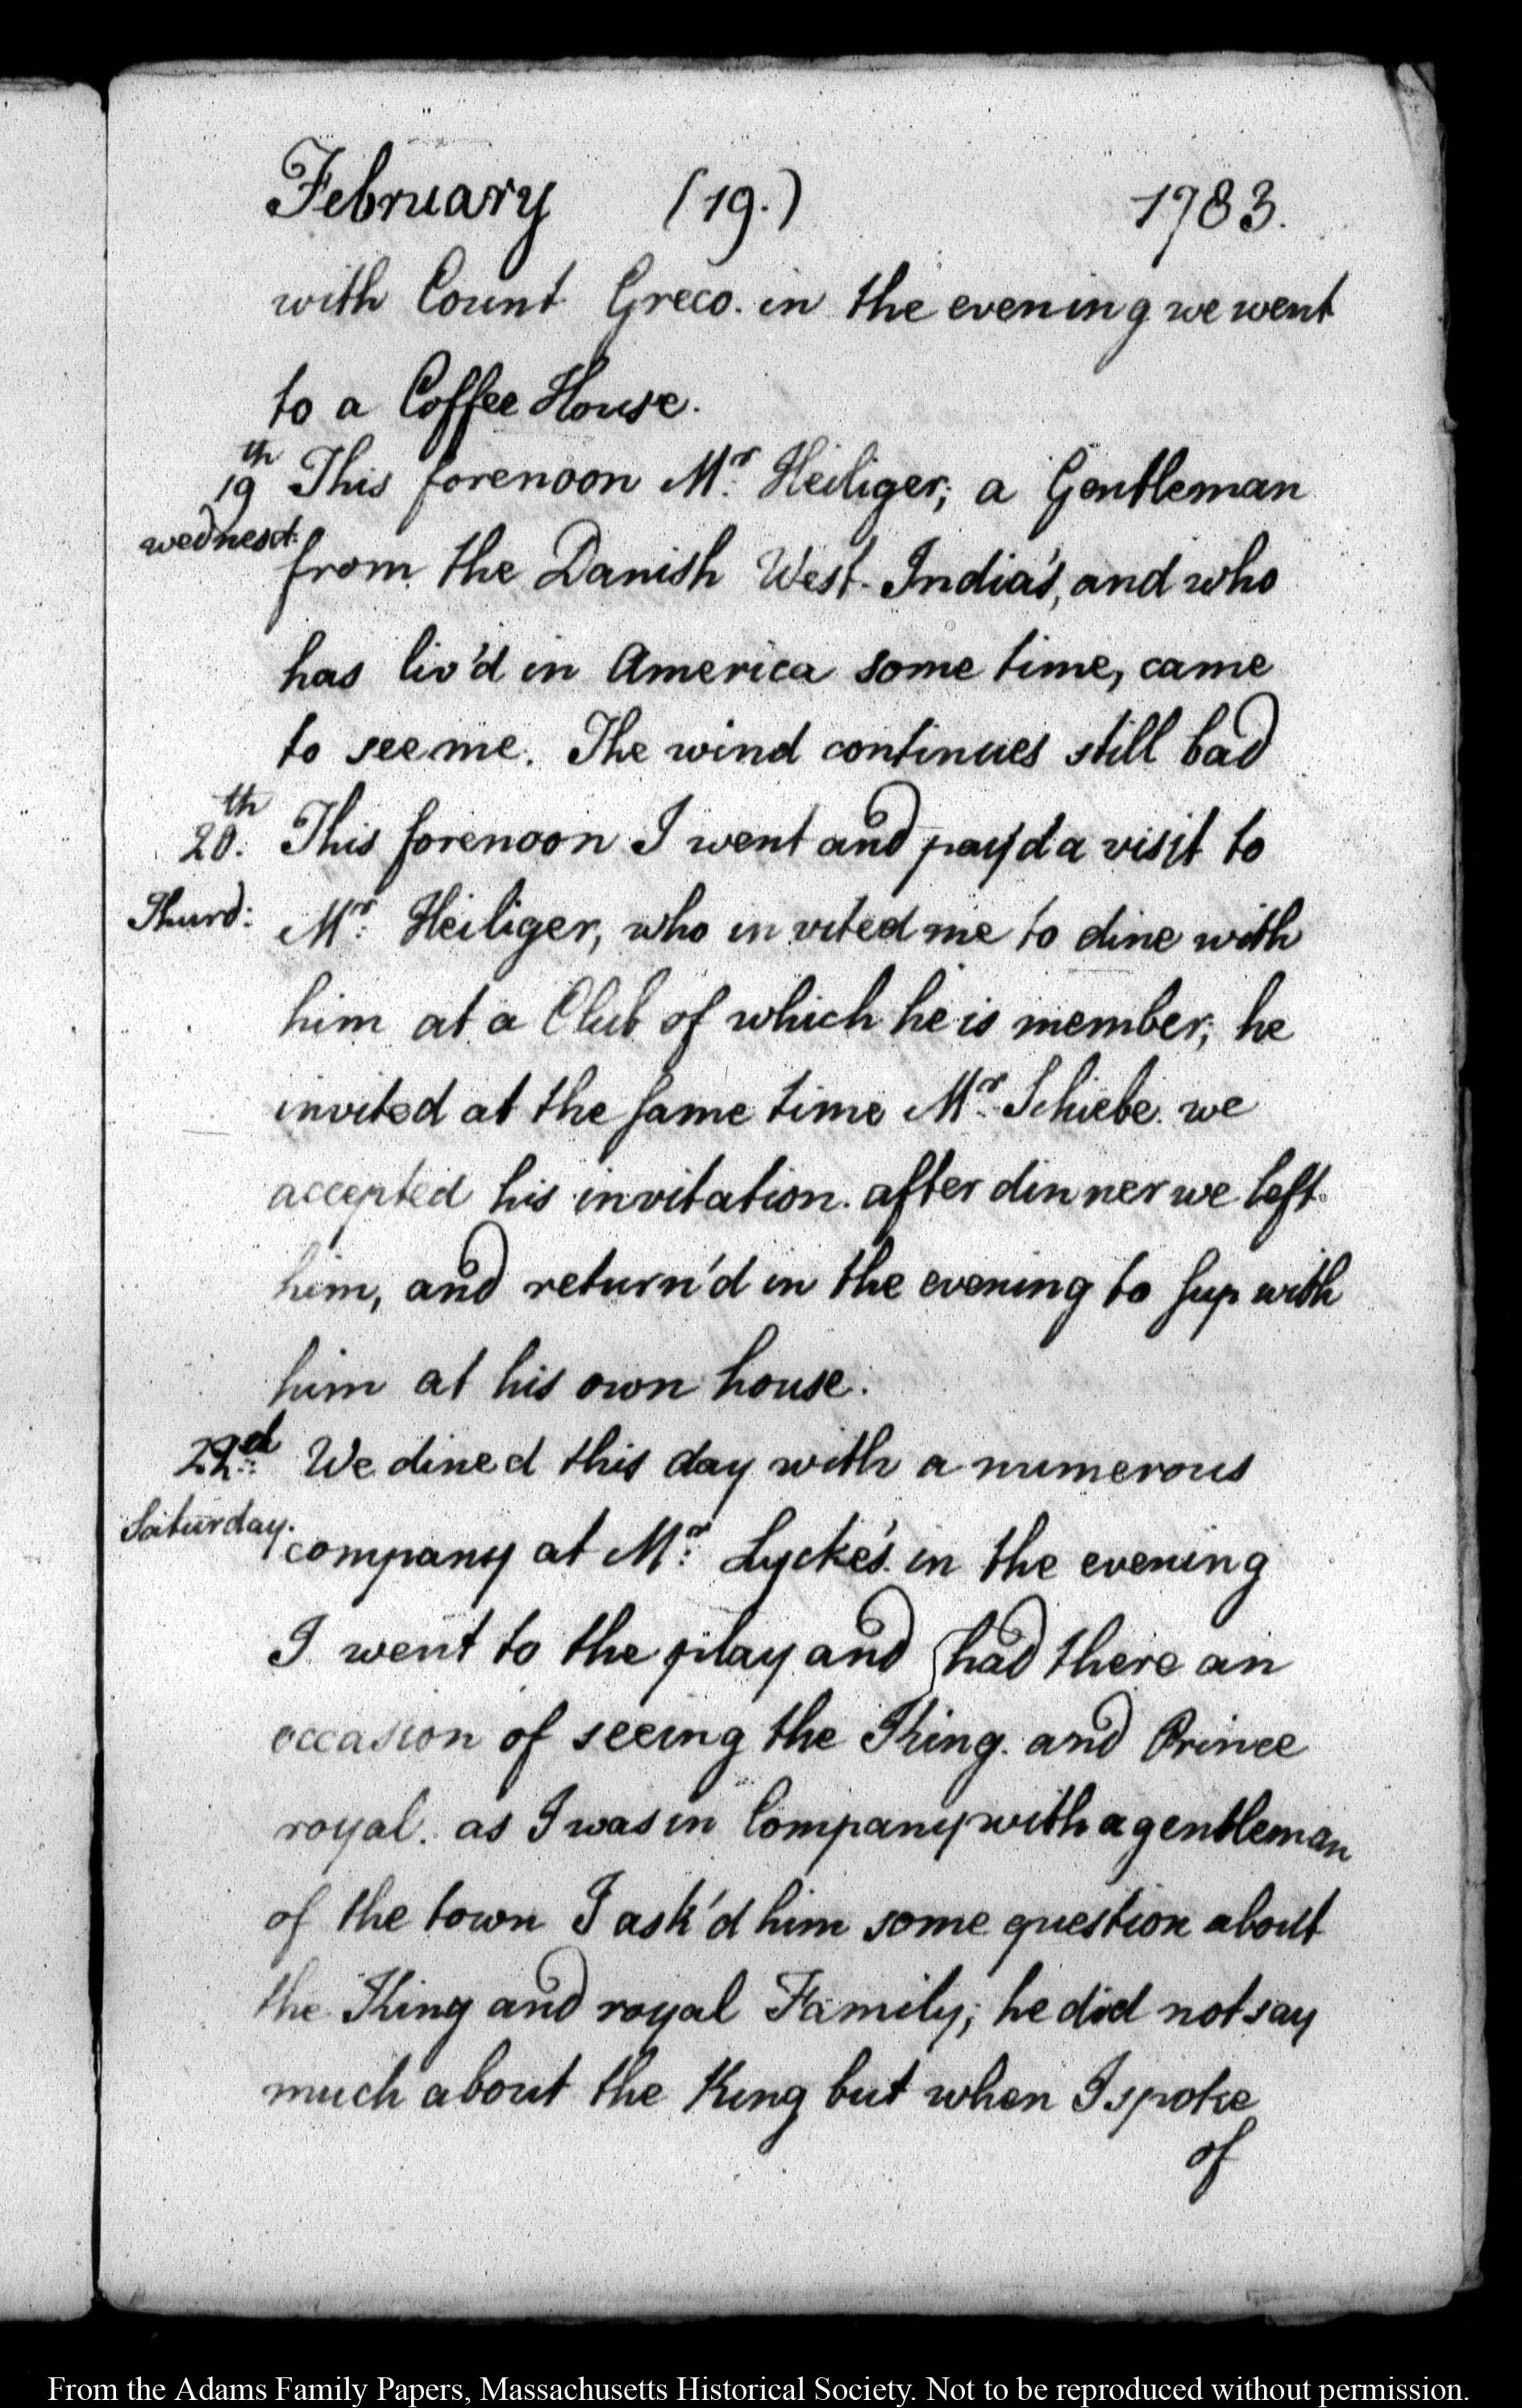 February (19.) 1783.
with Count Greco. in the evening we went
to a Coffee House.
19th This forenoon Mr: Heiliger, a Gentleman
wednesd:
from the Danish West-India's, and who
has liv'd in America some time, came
to see me. The wind continues still bad
20th. This forenoon I went and pay'd a visit to
Thurd: Mr: Heiliger, who invited me to dine with
him at a Club of which he is member, he
invited at the same time Mr: Schiebe. we
accepted his invitation. after dinner we left
him, and return'd in the evening to sup with
him at his own house.
22d: We dined this day with a numerous
Saturday.
company at Mr: Lycke's. in the evening
I went to the play and had there an
occasion of seeing the King. and Prince
royal. as I was in Company with a gentleman
of the town I ask'd him some question about
the King and royal Family; he did not say
much about the King but when I spoke
of
From the Adams Family Papers, Massachusetts Historical Society. Not to be reproduced without permission.